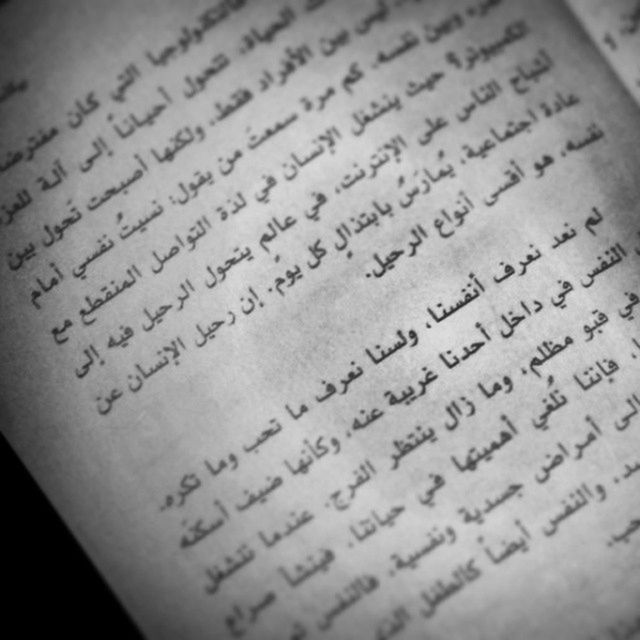 التكنولوجيا التي كان
الحياة، تتحول أحياناً إلى آلة
ليس بين الأفراد فقط، ولكنها أصبحت تحول بين
وبين نفسه. كم مرة سمعت من يقول: نسيتُ نفسي أمام
الكمبيوتر؟ حيث ينشغل الإنسان في لذة التواصل المتقطع مع
أشباح الناس على الإنترنت، في عالم يتحول الرحيل فيه إلى
عادة اجتماعية، يُمارس بابتذال كل يوم. إن رحيل الإنسان عن
نفسه، هو أقسى أنواع الرحيل.
لم نعد نعرف أنفسنا، ولسنا نعرف ما تحب وما تكره.
النفس في داخل أحدنا غريبة عنه وكأنها ضيف أسكنه
في قبو مظلم، وما زال ينتظر الفرج. عندما ننشغل
فإننا نُلغي أهميتها في حياتنا، فينشأ صراع
إلى أمراض جسدية ونفسية. فالنفس
والنفس أيضاً كالطفل